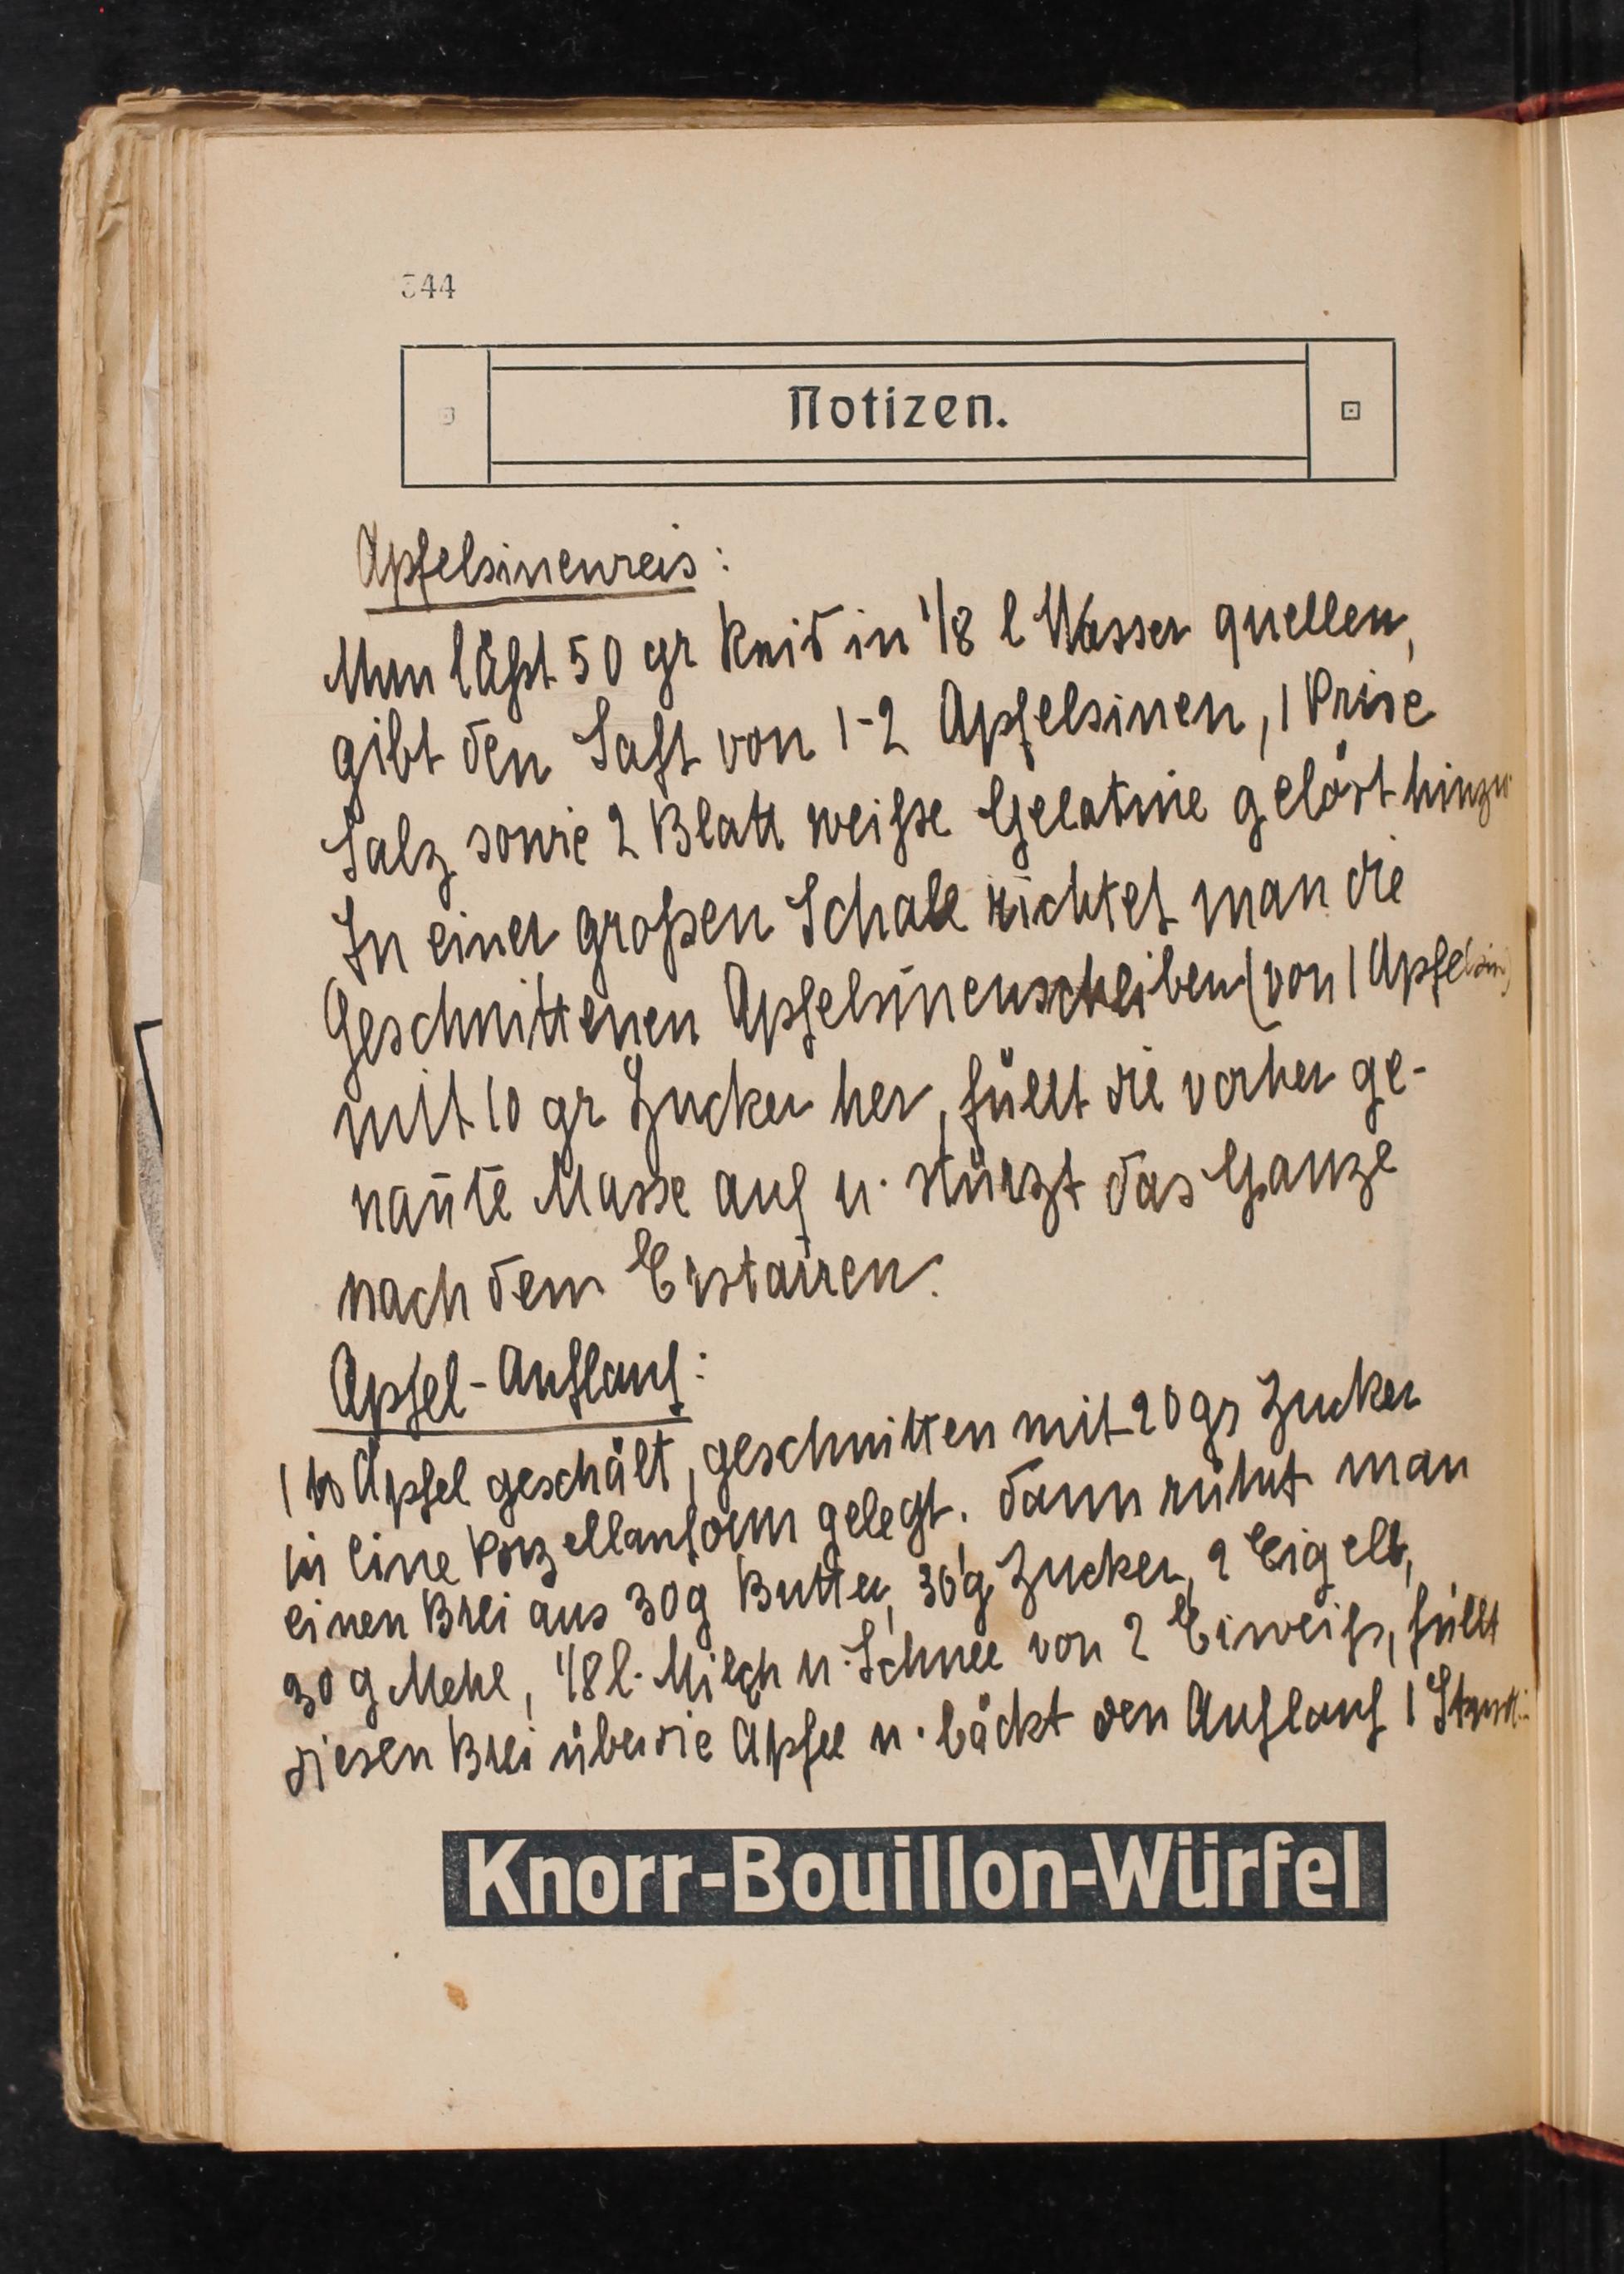 344
Notizen.
Apfelsinenreis:
Man läßt 50 gr Reis in 1/8 l Wasser quellen,
gibt den Saft von 1-2 Apfelsinen, 1 Prise
Salz sowie 2 Blatt weiße Gelatine gelöst hinzu
In einer großen Schale richtet man die
Geschnittenen Apfelsinenscheiben (von 1 Apfelsin)
mit 10 gr Zucker her, füllt die vorher ge-
nan̄te Masse auf u. stürzt das Ganze
nach dem Erstarren.
Apfel-Auflauf:
1 ℔ Äpfel geschält, geschnitten mit 20 gr Zucker
in eine Porzellanform gelegt. dann rührt man
einen Brei aus 30 g Butter, 30 g Zucker, 2 Eigelb,
30 g Mehl, 1/8 l. Milch u. Schnee von 2 Eiweiß, füllt
diesen Brei über die Äpfel u. bäckt den Auflauf 1 Stunde
Knorr-Bouillon-Würfel